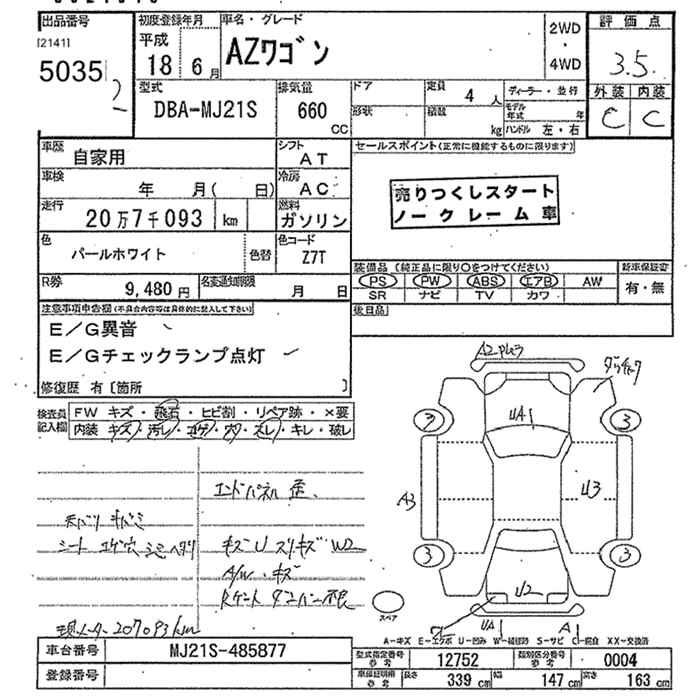 出品番号 初度登録年月 車名・グレード 2WD 評価点
[2141] 平成 AZワゴン ・ 3.5
5035 18 6月 4WD 外装 内装
2 型式 排気量 ドア 定員 4人 ディーラー・並行 C C
DBA-MJ21S 660 CC 形状 積数 kg モデル年式 年
ハンドル 左・右
車歴 自家用 シフト AT セールスポイント(正常に機能するものに限ります)
車検 年 月( 日) 冷房 AC 売りつくしスタート
走行 20万7千093 km 燃料 ガソリン ノークレーム車
色 パールホワイト 色替 色コード Z7T
装備品(純正品に限り○をつけてください) 新車保証書
R券 9,480円 名変通知期限 月 日 PS PW ABS エアB AW 有・無
SR ナビ TV カワ
注意事項申告欄(不具合内容等は具体的に記入して下さい) 後日品
E/G異音
E/Gチェックランプ点灯
修復歴 有〔箇所 〕
検査員 FW キズ・飛石・ヒビ割・リペア跡・×要
記入欄 内装 キズ・汚レ・コゲ・穴・スレ・キレ・破レ
エンドパネル 歪
天バリ キバミ
シート コゲ穴 シミ ヘタリ キズU スリキズ W2
A/W・キズ
Rゲート ダンパー不良
現メーター207093km
A2
3 UA1 3
A3 U3
3 3
U2
スペア UA1 A1
A-キズ E-エクボ U-凹み W-補修跡 S-サビ C-腐食 XX-交換済
車台番号 MJ21S-485877 型式指定番号 参考 12752 類別区分番号 参考 0004
登録番号 車庫証明用 参考 長さ 339cm 幅 147cm 高さ 163cm